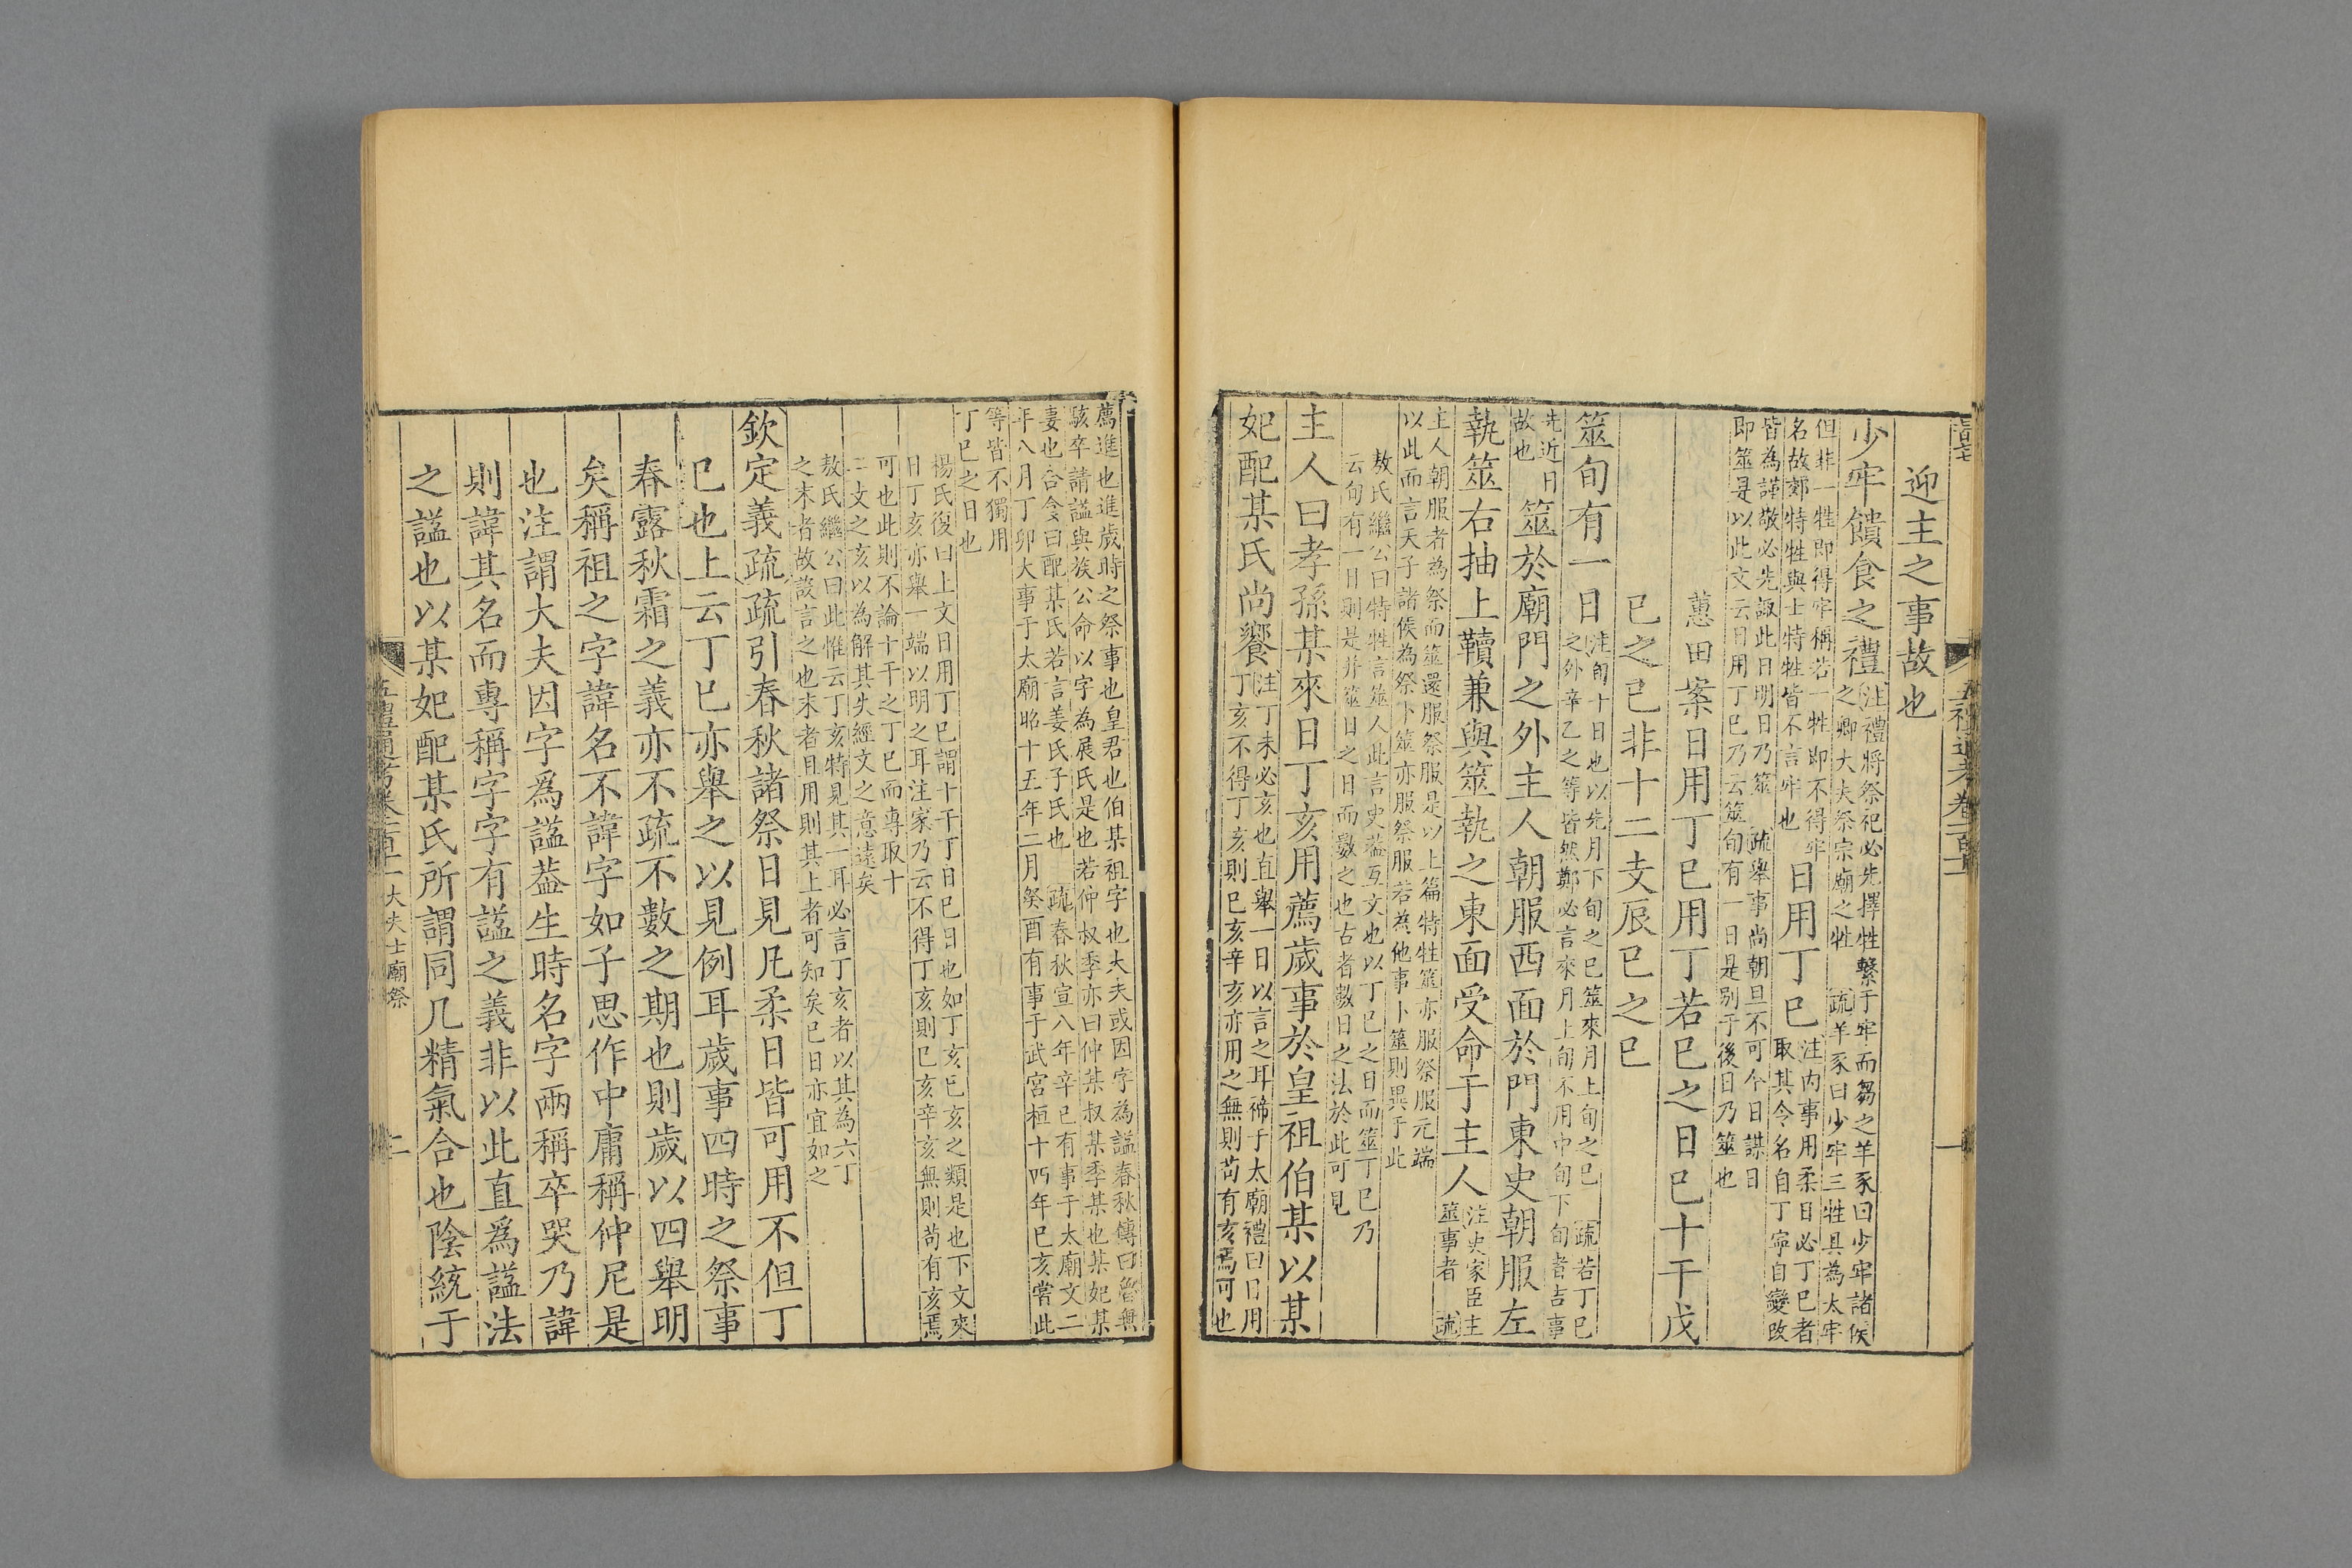 迎主之事故也
少牢饋食之禮
注禮將祭祀必先擇牲繫于牢而芻之羊豕曰少牢諸侯
之卿大夫祭宗廟之牲 疏羊豕曰少牢三牲具為太牢
但非一牲即得牢稱若一牲即不得牢
名故郊特牲與士特牲皆不言牢也
日用丁巳
注内事用柔日必丁巳者
取其令名自丁寧自變改
皆為謹敬必先諏此日明日乃筮 疏舉事尚朝旦不可今日謀日
即筮是以此文云日用丁巳乃云筮旬有一日是别于後日乃筮也
蕙田案日用丁巳用丁若巳之日巳十干戊
巳之巳非十二支辰巳之巳
筮旬有一日
注旬十日也以先月下旬之巳筮來月上旬之巳 疏若丁巳
之外辛乙之等皆然鄭必言來月上旬不用中旬下旬者吉事
先近日
故也
筮於廟門之外主人朝服西面於門東史朝服左
執筮右抽上韇兼與筮執之東面受命于主人
注史家臣主
筮事者 疏
主人朝服者為祭而筮還服祭服是以上篇特牲筮亦服祭服元端
以此而言天子諸侯為祭卜筮亦服祭服若為他事卜筮則異于此
敖氏繼公曰特牲言筮人此言史蓋互文也以丁巳之日而筮丁巳乃
云旬有一日則是并筮日之日而數之也古者數日之法於此可見
主人曰孝孫某來日丁亥用薦歲事於皇祖伯某以某
妃配某氏尚饗
注丁未必亥也直舉一日以言之耳禘于太廟禮曰日用
丁亥不得丁亥則巳亥辛亥亦用之無則苟有亥焉可也
薦進也進歲時之祭事也皇君也伯某祖字也大夫或因字為謚春秋傳曰魯無
駭卒請謚與族公命以字為展氏是也若仲叔季亦曰仲某叔某季某也某妃某
妻也合食曰配某氏若言姜氏子氏也 疏春秋宣八年辛巳有事于太廟文二
年八月丁卯大事于太廟昭十五年二月癸酉有事于武宮桓十四年巳亥嘗此
等皆不獨用
丁巳之日也
楊氏復曰上文日用丁巳謂十干丁日巳日也如丁亥巳亥之類是也下文來
日丁亥亦舉一端以明之耳注家乃云不得丁亥則巳亥辛亥無則苟有亥焉
可也此則不論十干之丁巳而專取十
二支之亥以為解其失經文之意遠矣
敖氏繼公曰此惟云丁亥特見其一耳必言丁亥者以其為六丁
之末者故設言之也末者且用則其上者可知矣巳日亦宜如之
欽定義疏疏引春秋諸祭日見凡柔日皆可用不但丁
巳也上云丁巳亦舉之以見例耳歲事四時之祭事
春露秋霜之義亦不疏不數之期也則歲以四舉明
矣稱祖之字諱名不諱字如子思作中庸稱仲尼是
也注謂大夫因字爲謚葢生時名字兩稱卒哭乃諱
則諱其名而專稱字字有謚之義非以此直爲謚法
之謚也以某妃配某氏所謂同几精氣合也陰統于
五禮通考卷一百十一 大夫士廟祭
二